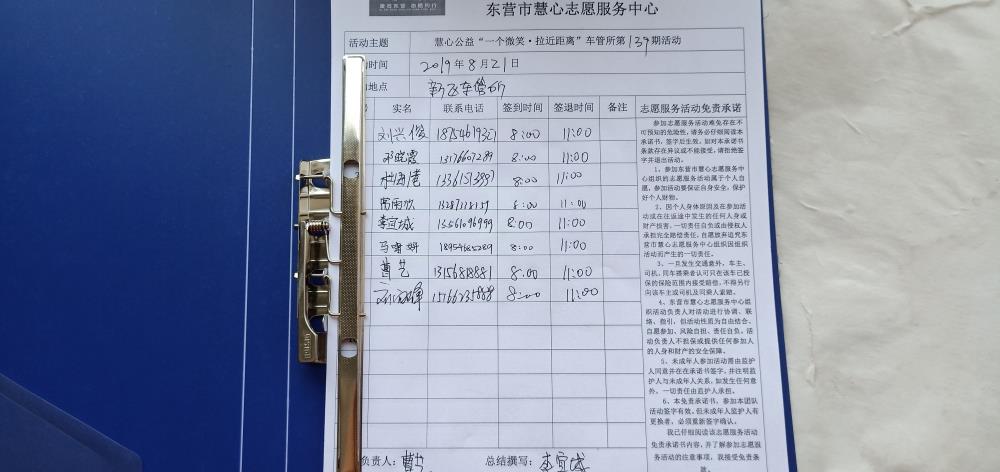 东营市慧心志愿服务中心
活动主题 慧心公益“一个微笑·拉近距离”车管所第139期活动
时间 2019年8月21日
地点 新区车管所
实名 联系电话 签到时间 签退时间 备注 志愿服务活动免责承诺
刘兴俊 8:00 11:00
邓晓霞 13176607289 8:00 11:00
8:00 11:00
常南欣 8:00 11:00
李宜城 15561096999 8:00 11:00
马雪妍 18954685289 8:00 11:00
曹艺 13156818881 8:00 11:00
15766235888 8:00 11:00
参加志愿服务活动难免存在不
可预知的危险性，请务必仔细阅读本
承诺书，签字后生效。如对本承诺书
条款存在异议或不能接受，请拒绝签
字并退出活动。
1、参加东营市慧心志愿服务中心
组织的志愿服务活动属于个人自
愿，参加活动要保证自身安全，保护
好个人财物。
2、因个人身体原因及在参加活
动或在往返途中发生的任何人身或
财产损害，一切责任自负或由侵权人
承担完全赔偿责任，自愿放弃追究东
营市慧心志愿服务中心组织因组织
活动而产生的一切责任。
3、一旦发生交通意外，车主、
司机、同车搭乘者认可只在该车已投
保的保险范围内接受赔偿，不得另行
向该车主或司机及同乘人索赔。
4、东营市慧心志愿服务中心组
织活动负责人对活动进行协调、联
络、指引，但活动性质为自由结合、
自愿参加、风险自担、责任自负，活
动负责人不担保或提供任何参加人
的人身和财产的安全保障。
5、未成年人参加活动需由监护
人同意并在在承诺书签字，并注明监
护人与未成年人关系，如发生任何意
外，一切责任由监护人承担。
6、本免责承诺书，参加本团队
活动签字有效，但未成年人监护人有
更换者，必须重新签字确认。
我已仔细阅读该志愿服务活动
免责承诺书内容，并了解参加志愿服
务活动的注意事项，我接受免责条
款。
负责人：曹艺 总结撰写：李宜城